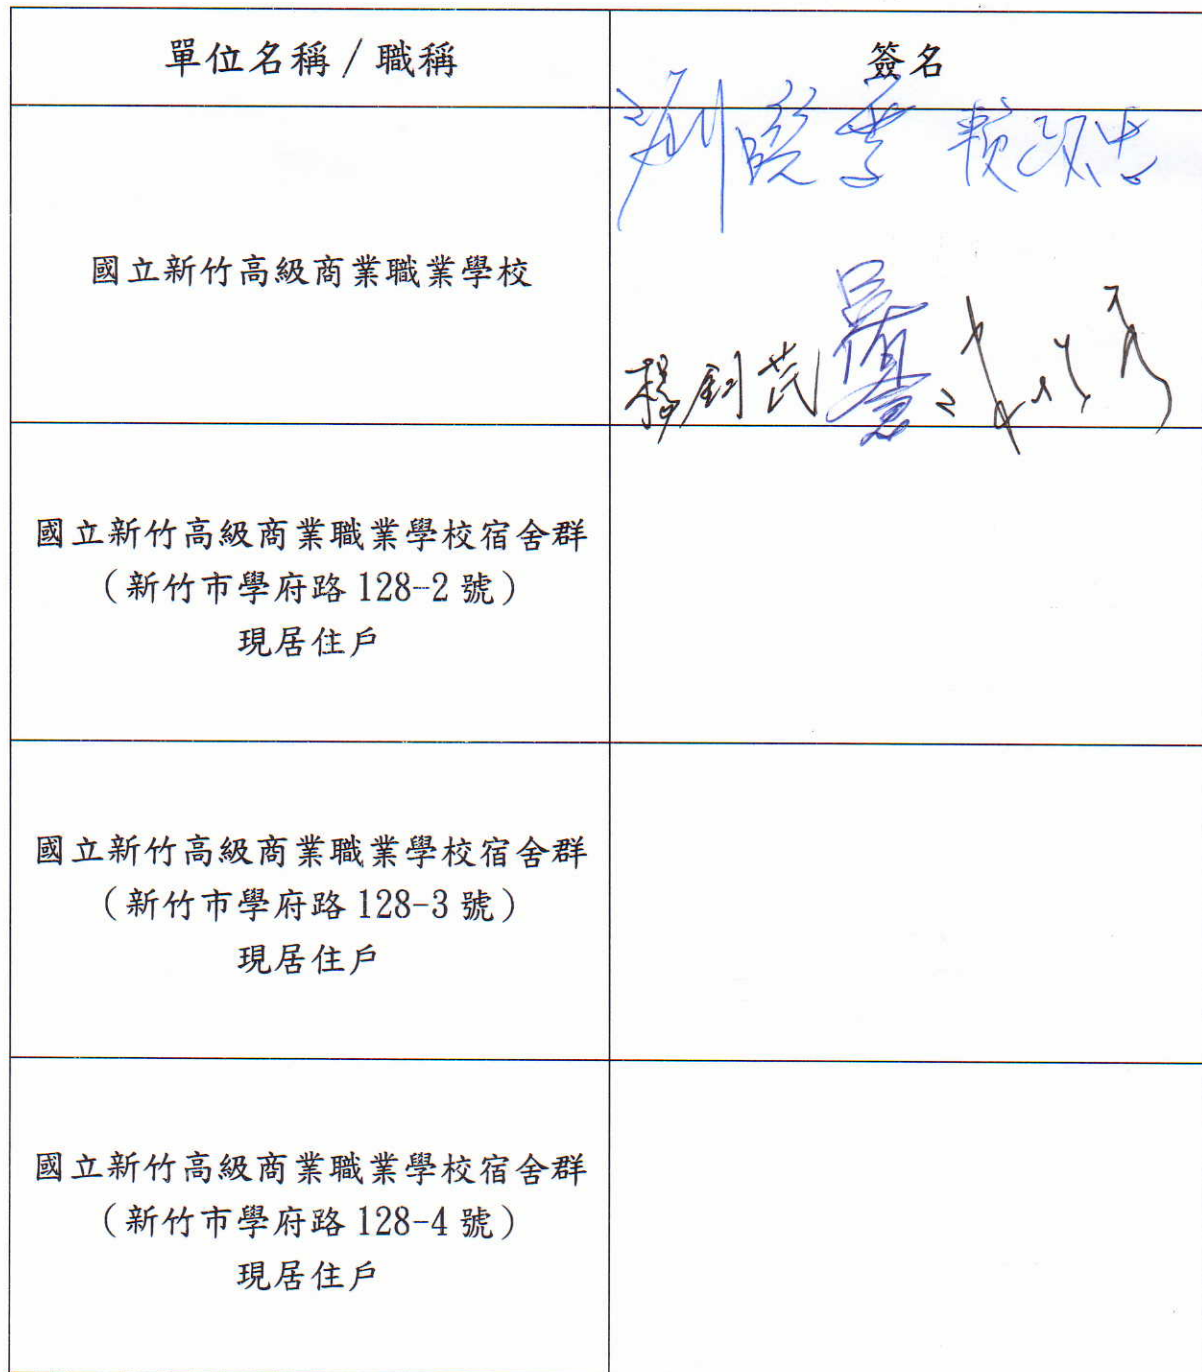 單位名稱/職稱
簽名
國立新竹高級商業職業學校
楊釗芪
國立新竹高級商業職業學校宿舍群
(新竹市學府路 128-2 號)
現居住戶
國立新竹高級商業職業學校宿舍群
(新竹市學府路 128-3 號)
現居住戶
國立新竹高級商業職業學校宿舍群
(新竹市學府路 128-4 號)
現居住戶